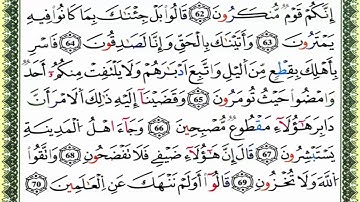 اِنَّكُمْ قَوْمٌ مُّنْكَرُونَ ﴿62﴾ قَالُوا بَلْ جِئْنٰكَ بِمَا كَانُوا فِيهِ
يَمْتَرُونَ ﴿63﴾ وَاَتَيْنٰكَ بِالْحَقِّ وَاِنَّا لَصَادِقُونَ ﴿64﴾ فَاَسْرِ
بِاَهْلِكَ بِقِطْعٍ مِنَ الَّيْلِ وَاتَّبِعْ اَدْبَارَهُمْ وَلَا يَلْتَفِتْ مِنْكُمْ اَحَدٌ
وَامْضُوا حَيْثُ تُومَرُونَ ﴿65﴾ وَقَضَيْنَا اِلَيْهِ ذٰلِكَ الْاَمْرَ اَنَّ
دَابِرَ هٰٓؤُلَآءِ مَقْطُوعٌ مُّصْبِحِينَ ﴿66﴾ وَجَآءَ اَهْلُ الْمَدِينَةِ
يَسْتَبْشِرُونَ ﴿67﴾ قَالَ اِنَّ هٰٓؤُلَآءِ ضَيْفِي فَلَا تَفْضَحُونِ ﴿68﴾ وَاتَّقُوا
اللّٰهَ وَلَا تُخْزُونِ ﴿69﴾ قَالُوا اَوَلَمْ نَنْهَكَ عَنِ الْعَالَمِينَ ﴿70﴾